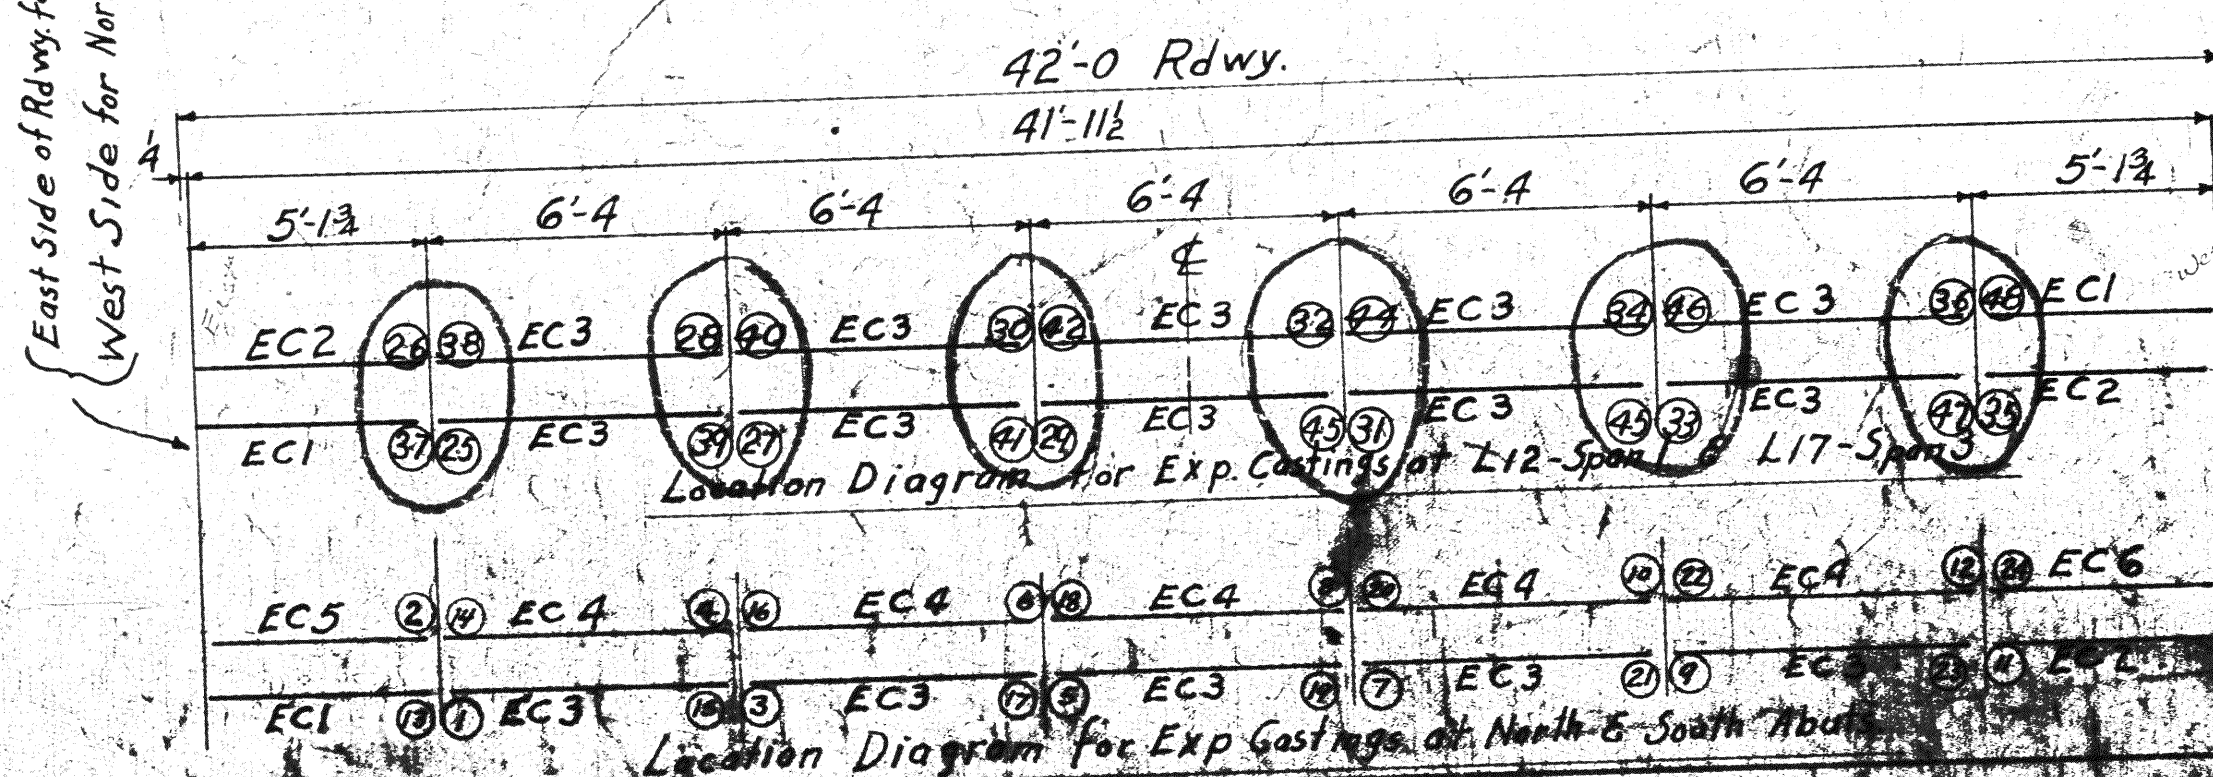 East Side of Rdwy. fo
West Side for Nor
42'-0 Rdwy.
41'-11½
¼
5'-1¾ 6'-4 6'-4 6'-4 6'-4 6'-4 5'-1¾
℄
EC2 26 38 EC3 28 40 EC3 30 42 EC3 32 44 EC3 34 46 EC3 36 48 EC1
EC1 37 25 EC3 39 27 EC3 41 29 EC3 45 31 EC3 45 33 EC3 47 35 EC2
Location Diagram for Exp. Castings at L12-Span 1 & L17-Span 3
EC5 2 14 EC4 4 16 EC4 6 18 EC4 8 20 EC4 10 22 EC4 12 24 EC6
EC1 13 1 EC3 15 3 EC3 17 5 EC3 19 7 EC3 21 9 EC3 23 11
Location Diagram for Exp Castings at North & South Abuts.